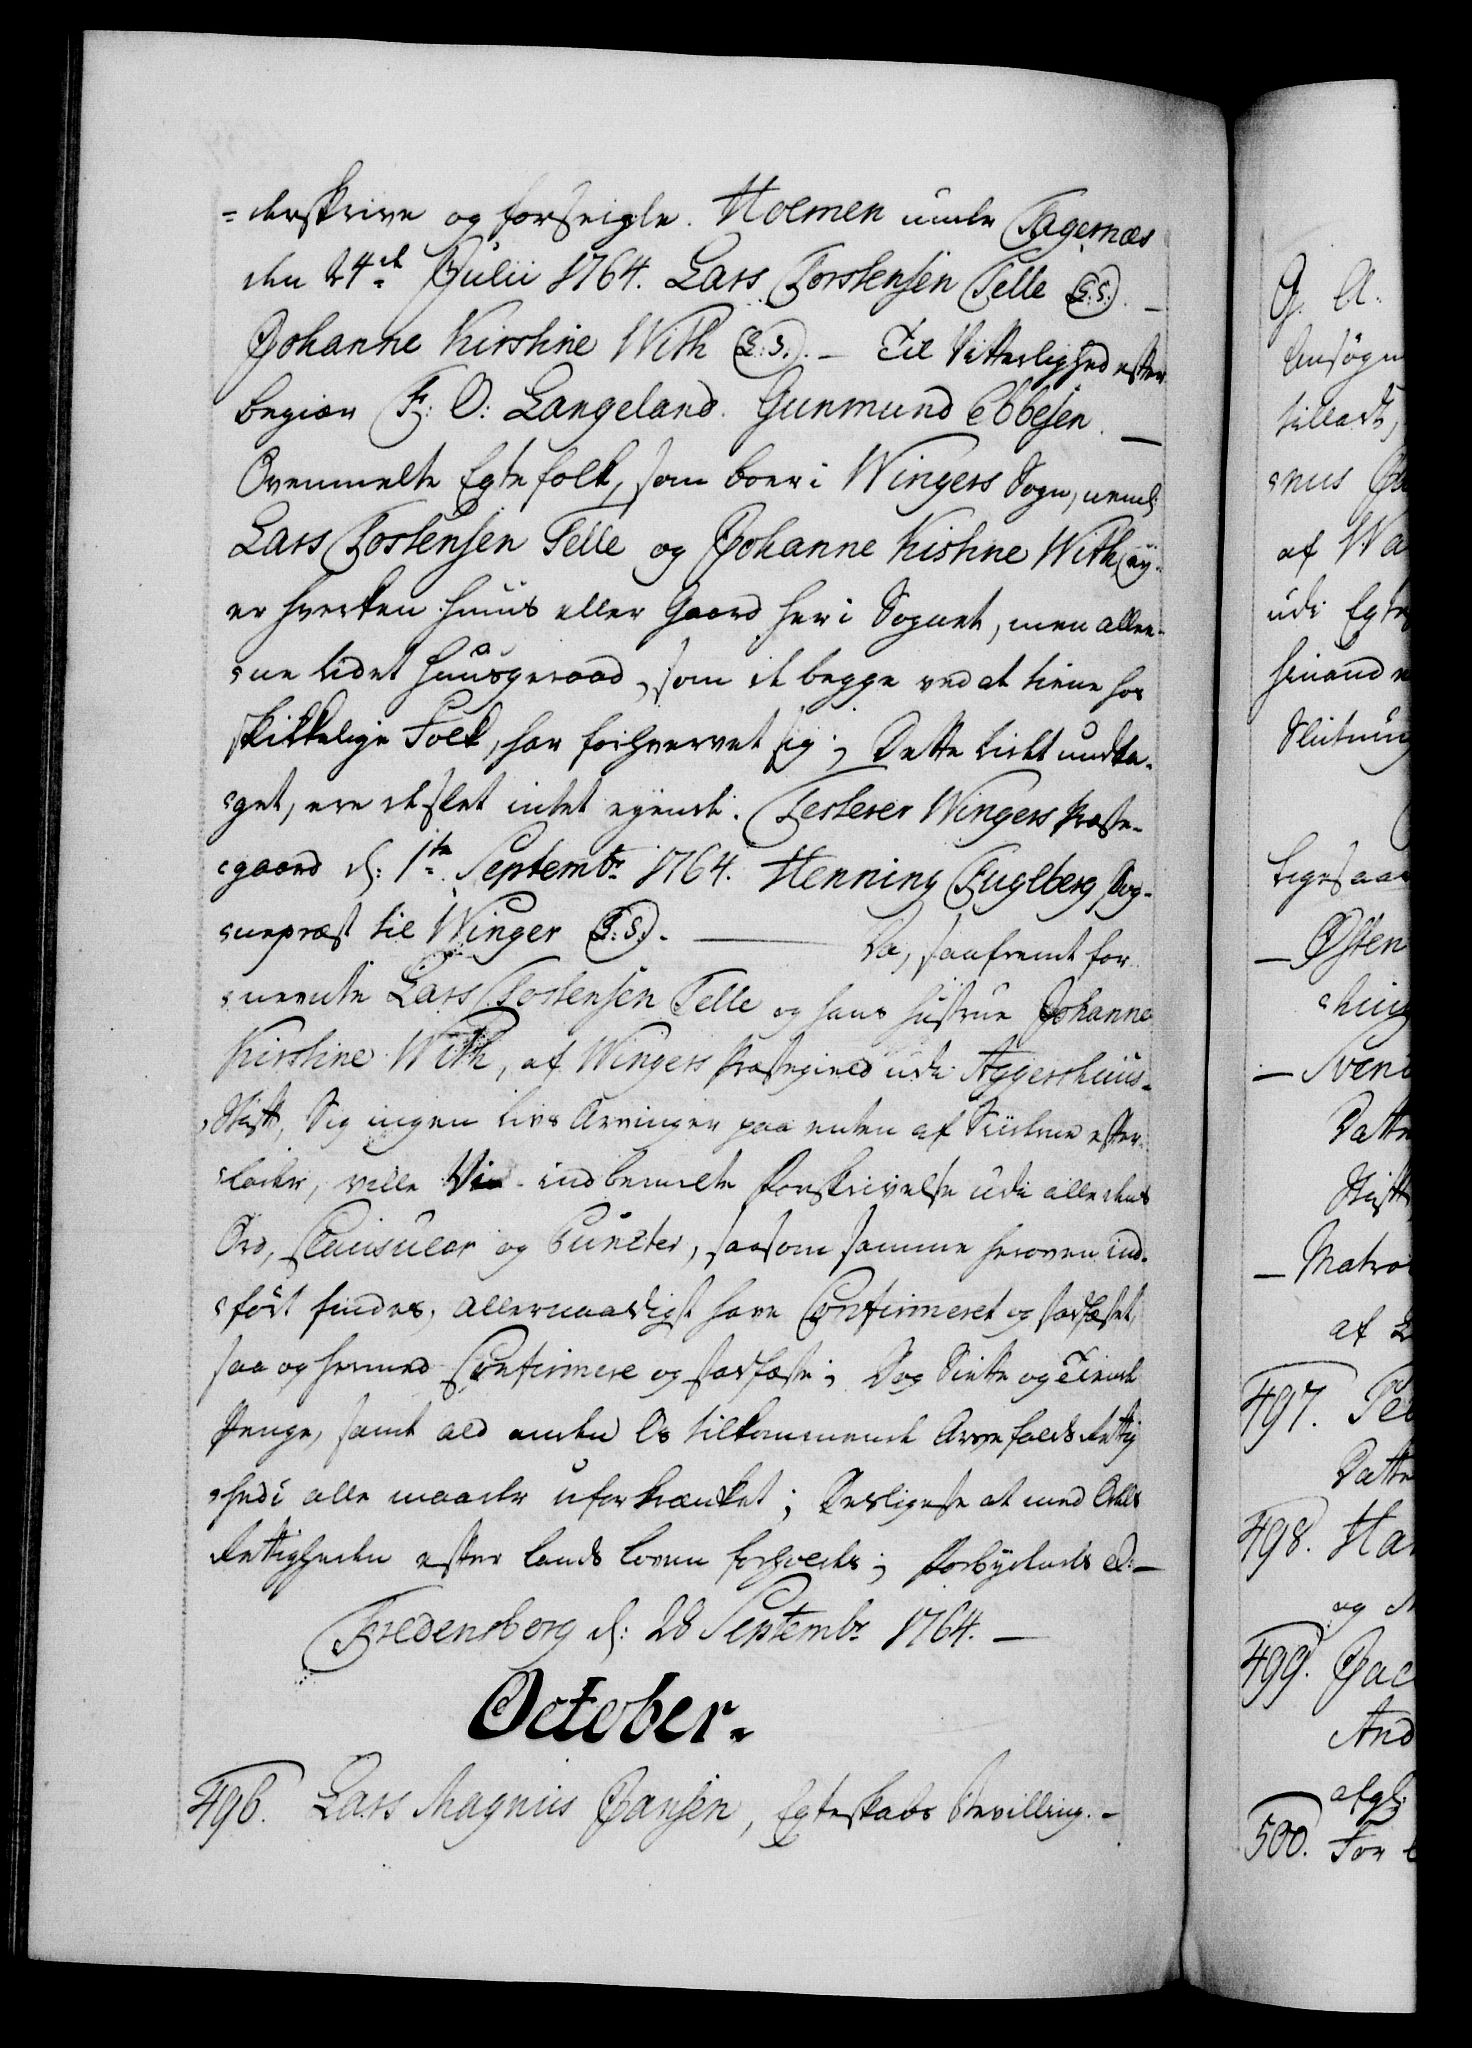 =derskrive og forseigle. Holmen under Tagernæs
den 24de Julii 1764. Lars Torstensen Telle (L:S:). —
Johanne Kirstine With (L:S:). — Til Vitterlighed efter
begiær F: O: Langeland. Gunmund Ebbesen. —
Ovenmelte Egtefolk, som boer i Wingers Sogn, neml:
Lars Tostensen Telle og Johanne Kistine With, ey-
er hverken Huus eller Gaard her i Sognet, men alle-
=ne lidet Huusgeraad, som de begge ved at tiene hos
skikkelige Folk, har forhvervet sig; Dette lidet undta-
=get, ere de slet intet eyende. Testerer Wingers Præste-
=gaard d: 1te Septembr 1764. Henning Fuglberg Sog-
=nepræst til Winger (L:S:). — Da, saafremt for-
=nevnte Lars Tostensen Telle og hans Hustrue Johanne
Kirstine With, af Wingers Præstegield udi Aggershuus-
Stift, Sig ingen Livs Arvinger paa enten af Siiderne efter-
=lader, ville Vi indbemelte Forskrivelse udi alle dens
Ord, Clausuler og Puncter, saasom samme heroven ind-
=ført findes, allernaadigst have Confirmeret og stadfæstet,
saa og hermed Confirmere og stadfæste; Dog Siette og Tiende
Penge, samt ald anden Os tilkommende Arvefalds Rettig-
=hed i alle maader uforkrænket; Desligeste at med Odels
Rettigheden efter Lands Loven forholdes; Forbydendes &: —
Fredensborg d: 28 Septembr 1764. —
October.
496. Lars Magnus Jansen, Egteskabs Bevilling. —
G. A.
Ansøgn
tilladt,
=nus
af Wa
udi Egte
hinand
Slutning
Ligesaa
— Østen
— Svend
Datte
Stift
— Matro
af
497.
Datte
498. Ha
og
499. Jac
And
afgl:
500. For